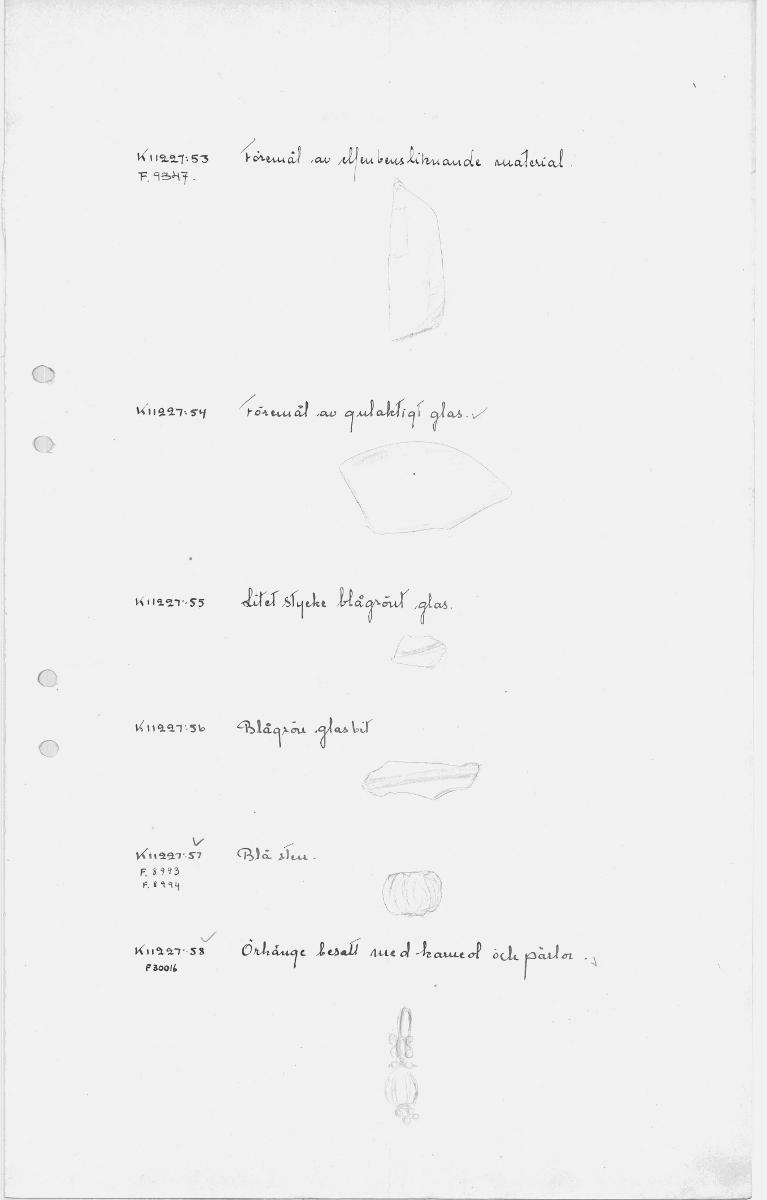 K11227:53 Föremål av elfenbensliknande material.
F. 9347.
K11227:54 Föremål av gulaktigt glas.
K11227:55 Litet stycke blågrönt glas.
K11227:56 Blågrön glasbit
K11227:57 Blå sten.
F. 8993
F. 8994
K11227:58 Örhänge besatt med karneol och pärlor.
F30016